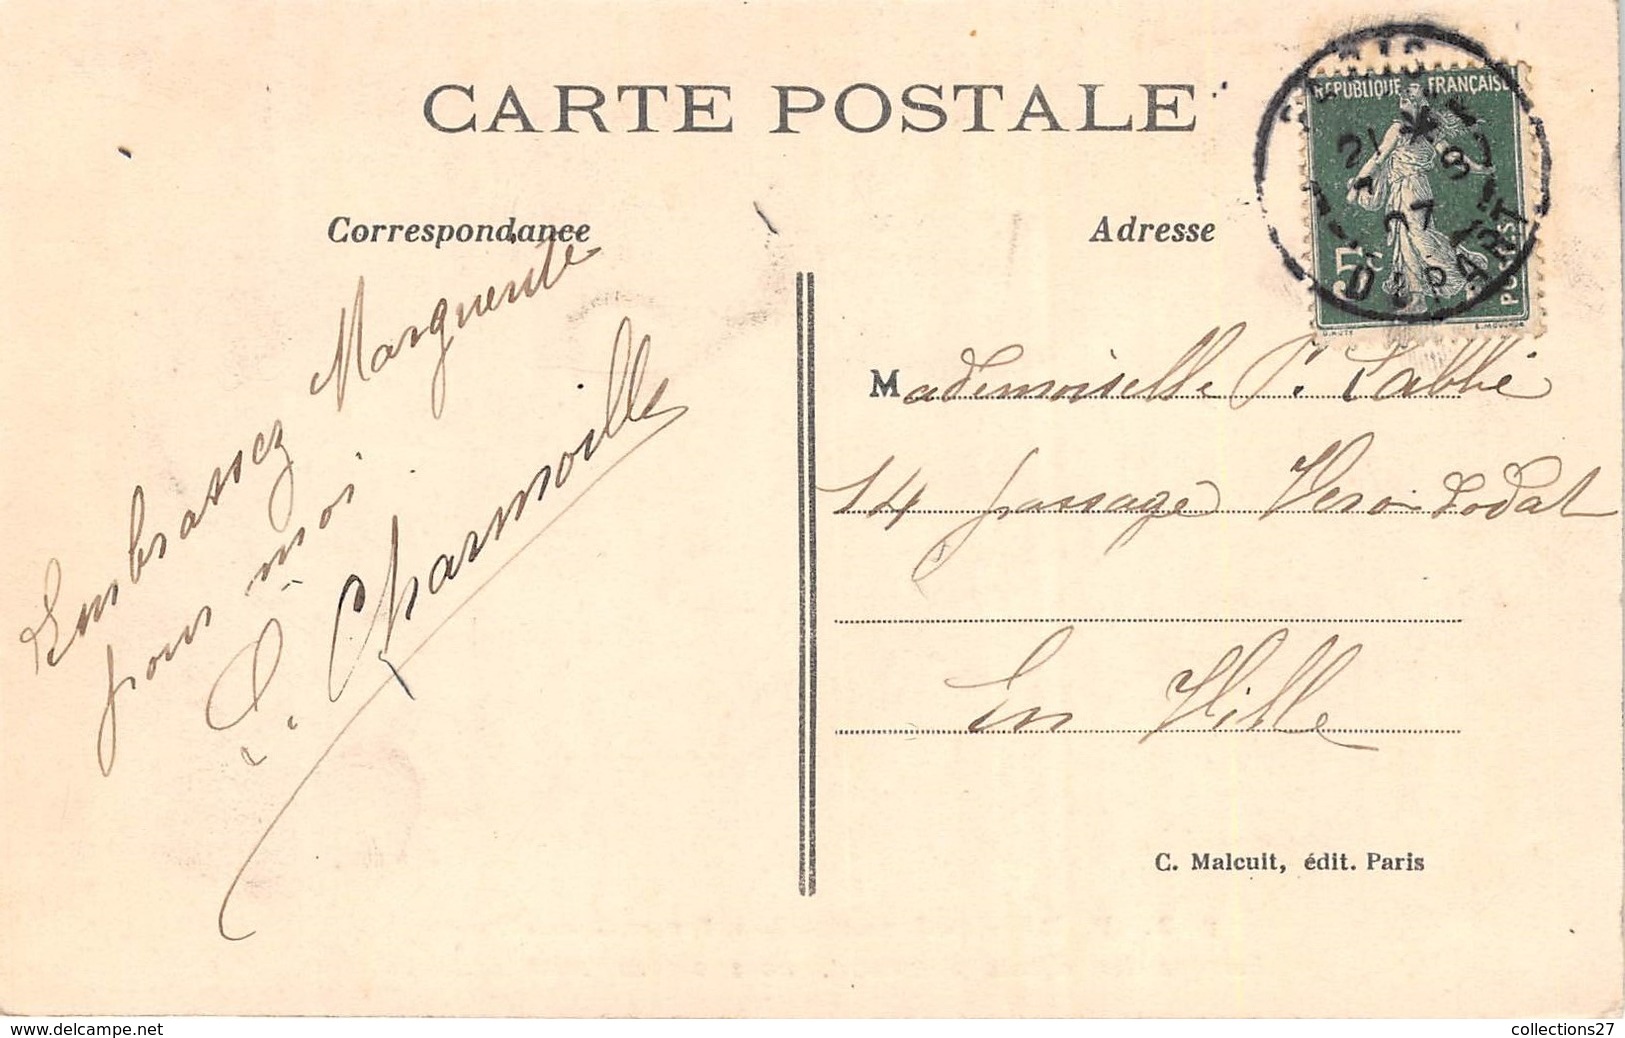 CARTE POSTALE
Correspondance
Adresse
RÉPUBLIQUE FRANÇAISE
5c
POSTES
DEPART
07
Embrassez Marguerite
pour moi.
Charmoille
Mademoiselle P. Labbé
14 passage Vero-Dodat
En Ville
C. Malcuit, édit. Paris
www.delcampe.net
collections27